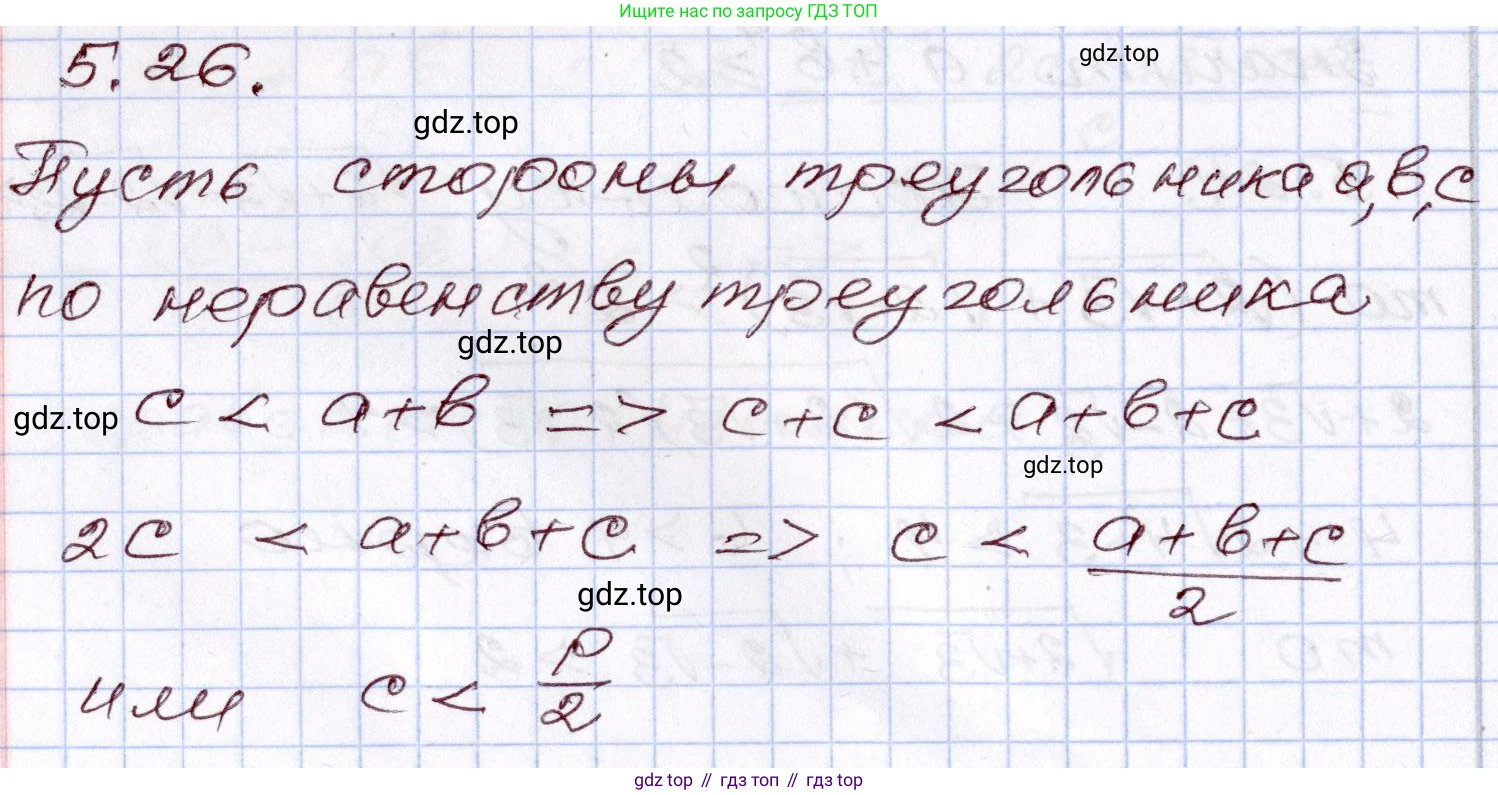 Ищите нас по запросу ГДЗ ТОП
5.26.
gdz.top
gdz.top
Пусть стороны треугольника a, b, c
по неравенству треугольника
gdz.top
gdz.top
c < a+b => c+c < a+b+c
gdz.top
2c < a+b+c => c < (a+b+c)/2
gdz.top
или c < P/2
gdz.top // гдз топ // гдз top